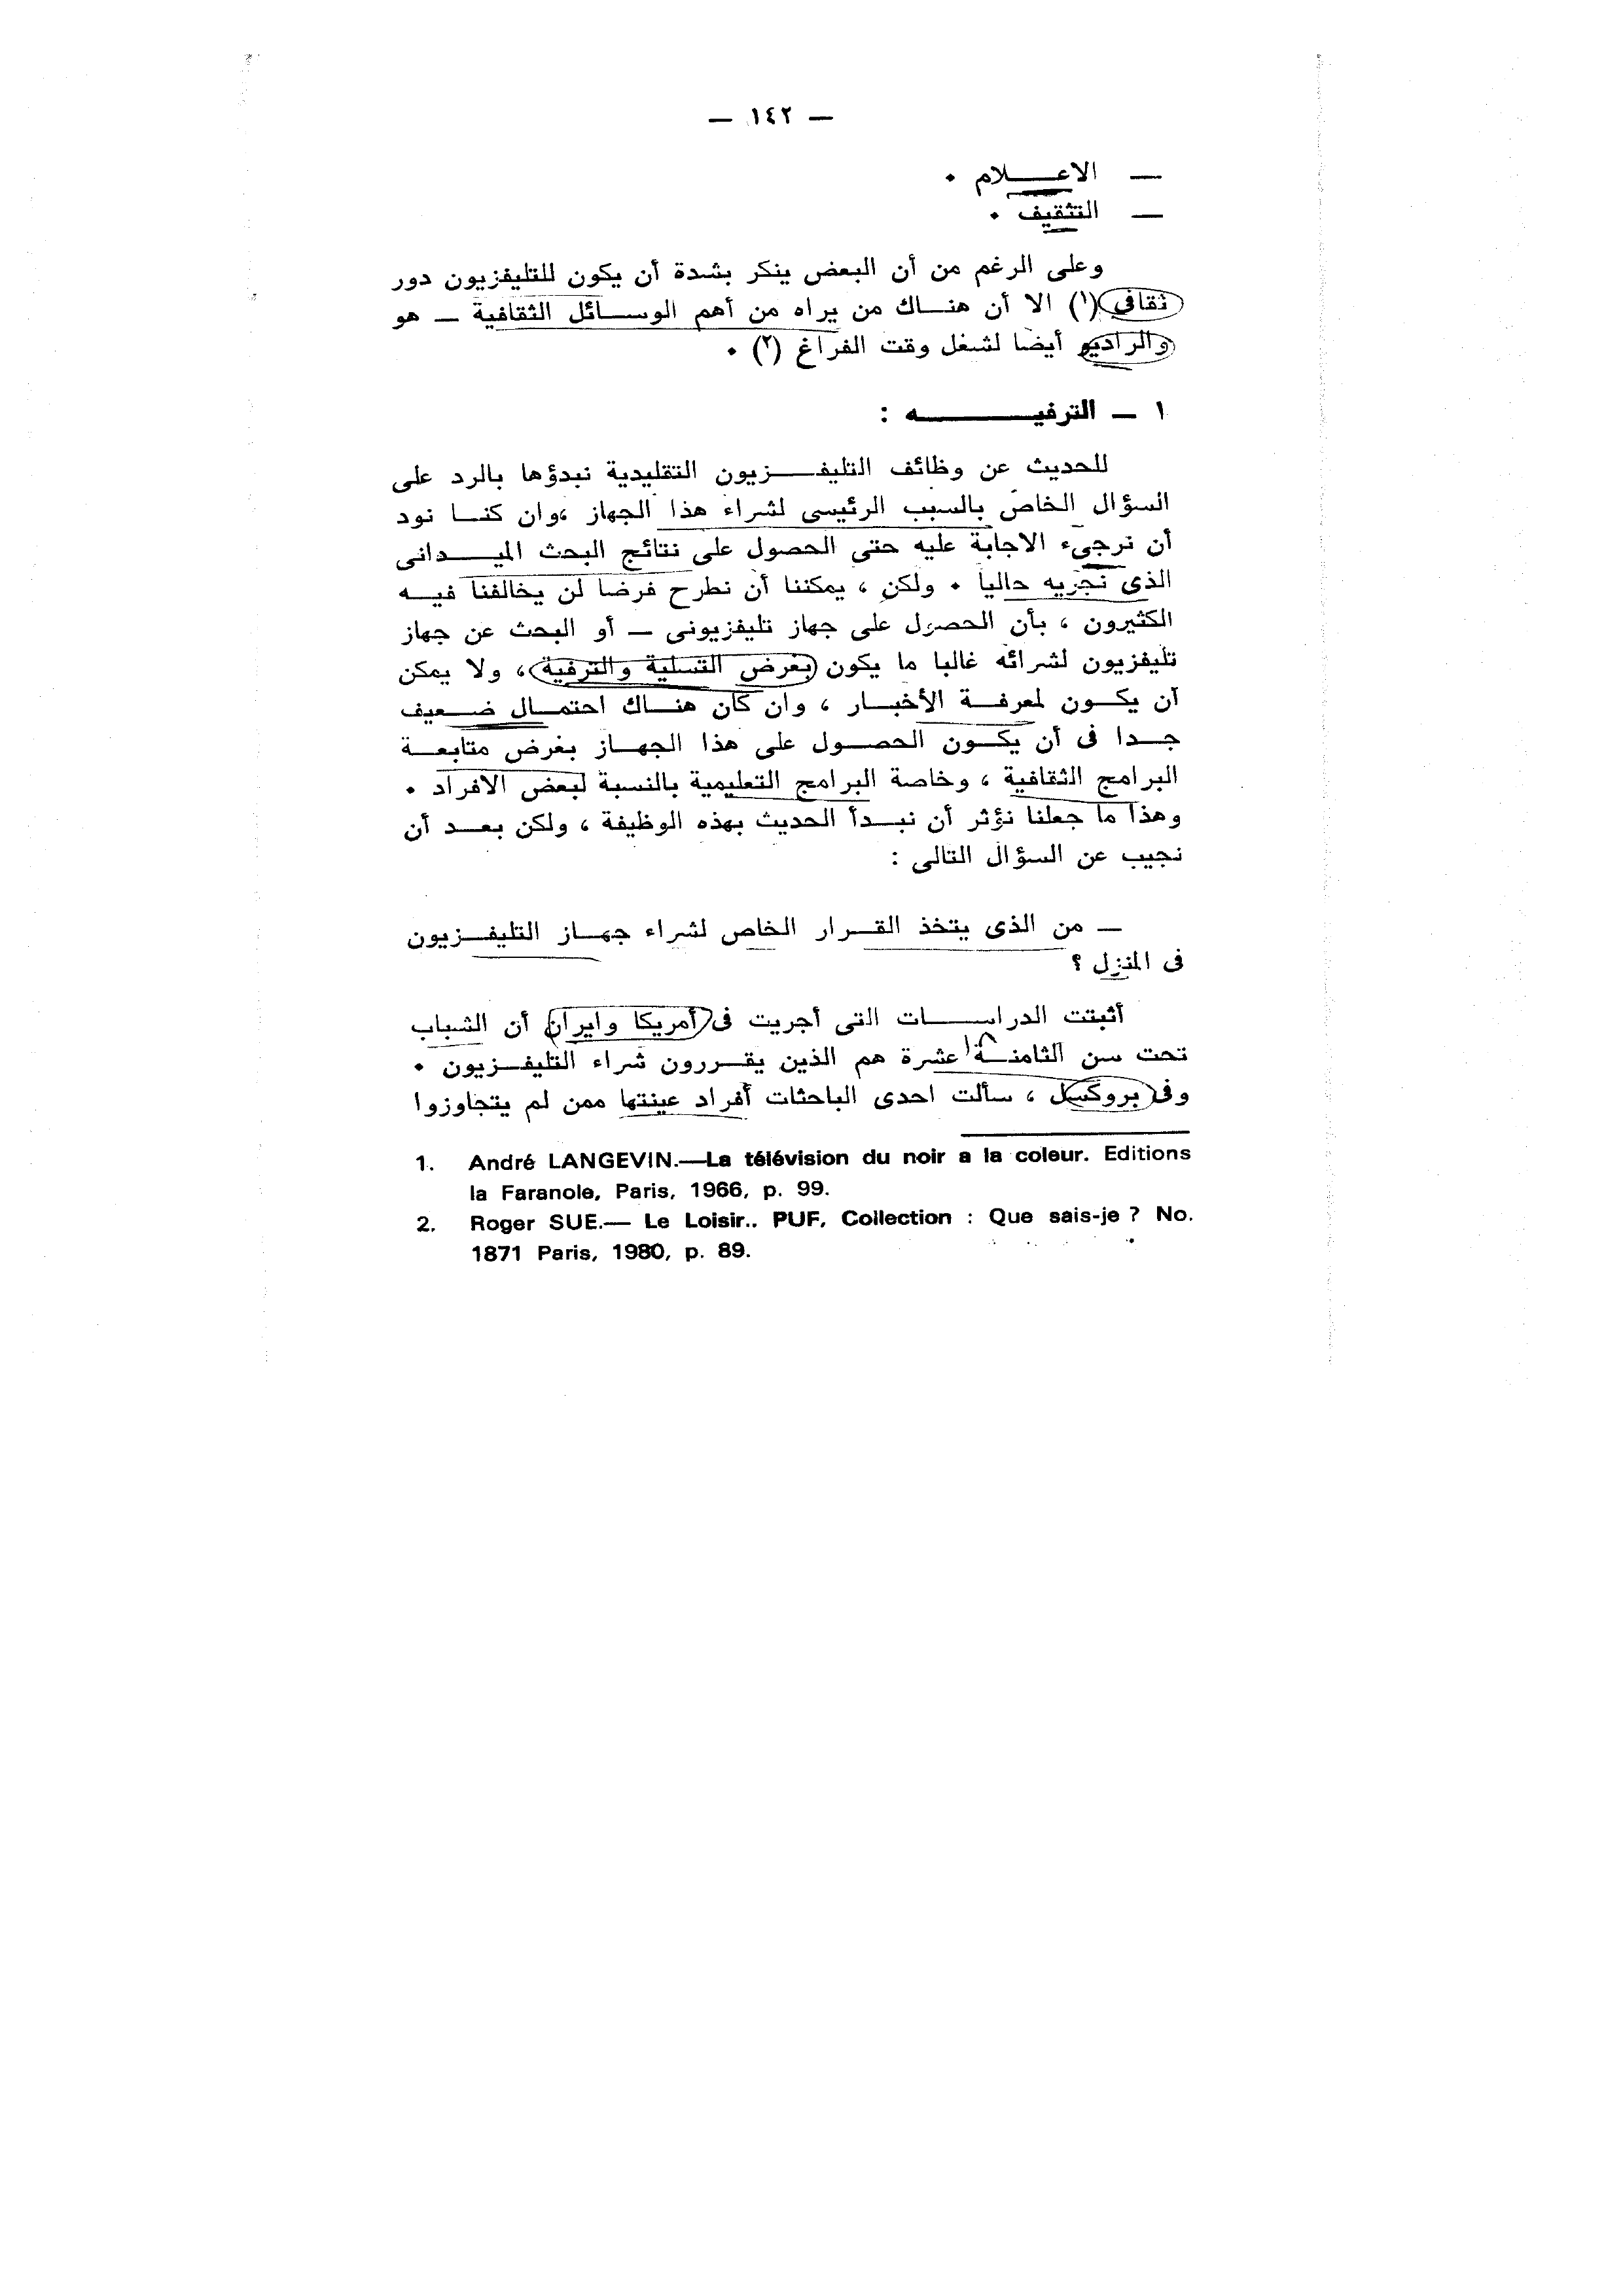 — ١٤٢ —
— الاعـــلام ٠
— التثقيف ٠
وعلى الرغم من أن البعض ينكر بشدة أن يكون للتليفزيون دور
ثقافى (١) الا أن هنـــاك من يراه من أهم الوســـائل الثقافية — هو
والراديو أيضا لشغل وقت الفراغ (٢) ٠
١ — الترفيـــــــه :
للحديث عن وظائف التليفـــزيون التقليدية نبدؤها بالرد على
السؤال الخاص بالسبب الرئيسى لشراء هذا الجهاز ،وان كنـــا نود
أن نرجىء الاجابة عليه حتى الحصول على نتائج البحث الميـــدانى
الذى نجريه حاليا ٠ ولكن ، يمكننا أن نطرح فرضا لن يخالفنا فيـــه
الكثيرون ، بأن الحصول على جهاز تليفزيونى — أو البحث عن جهاز
تليفزيون لشرائه غالبا ما يكون بغرض التسلية والترفية ، ولا يمكن
أن يكـــون لمعرفـــة الأخبـــار ، وان كان هنـــاك احتمـــال ضـــعيف
جـــدا فى أن يكـــون الحصـــول على هذا الجهـــاز بغرض متابعـــة
البرامج الثقافية ، وخاصة البرامج التعليمية بالنسبة لبعض الافراد ٠
وهذا ما جعلنا نؤثر أن نبـــدأ الحديث بهذه الوظيفة ، ولكن بعـــد أن
نجيب عن السؤال التالى :
— من الذى يتخذ القـــرار الخاص لشراء جهـــاز التليفـــزيون
فى المنزل ؟
أثبتت الدراســـات التى أجريت فى أمريكا وايران أن الشباب
تحت سن الثامنـــة عشرة هم الذين يقـــررون شراء التليفـــزيون ٠
وفى بروكسل ، سألت احدى الباحثات أفراد عينتها ممن لم يتجاوزوا
1. André LANGEVIN.—La télévision du noir a la coleur. Editions
la Faranole, Paris, 1966, p. 99.
2. Roger SUE.— Le Loisir.. PUF, Collection : Que sais-je ? No.
1871 Paris, 1980, p. 89.